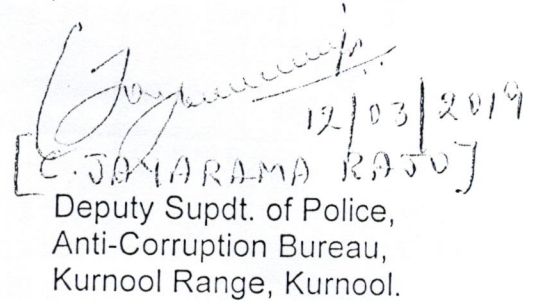 12/03/2019
[C. JAYARAMA RAJU]
Deputy Supdt. of Police,
Anti-Corruption Bureau,
Kurnool Range, Kurnool.